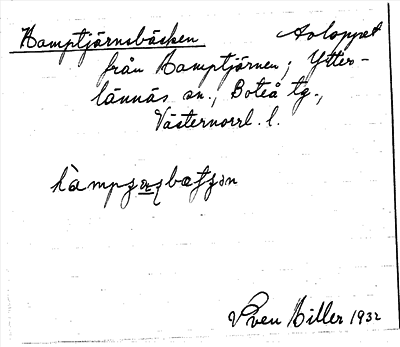 Kamptjärnsbäcken Avloppet
från Kamptjärnen, Ytter-
lännäs sn., Boteå tg.,
Västernorrl. l.
Sven Hiller 1932